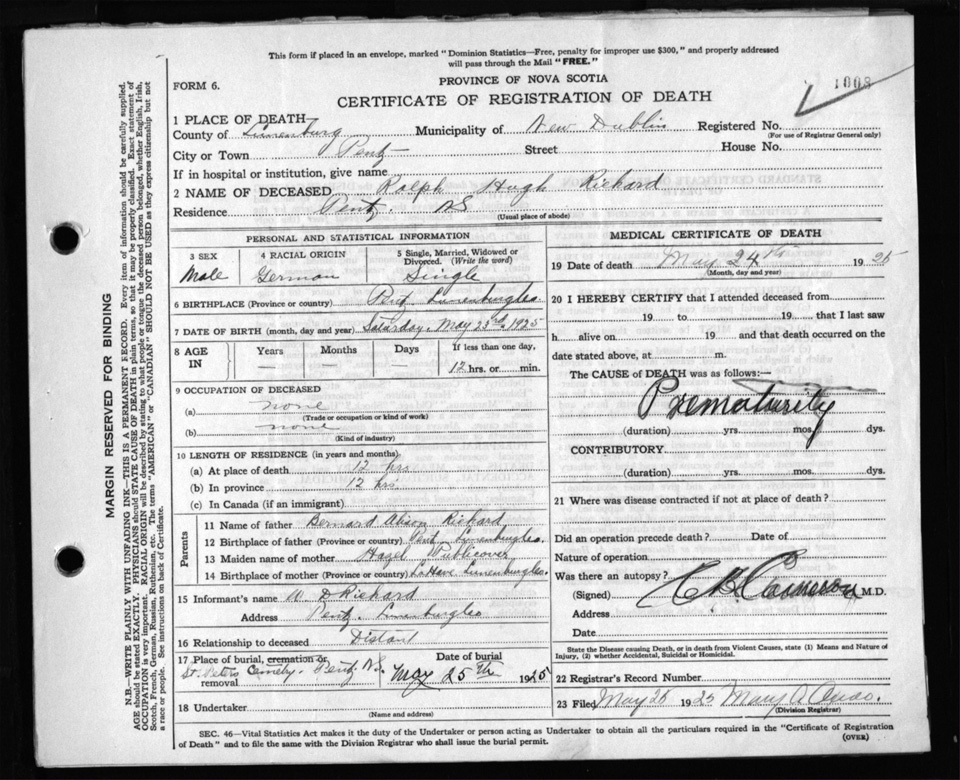 This form if placed in an envelope, marked "Dominion Statistics—Free, penalty for improper use $300," and properly addressed
will pass through the Mail "FREE."
FORM 6.
PROVINCE OF NOVA SCOTIA
1008
CERTIFICATE OF REGISTRATION OF DEATH
1 PLACE OF DEATH
County of Lunenburg Municipality of New Dublin Registered No.
(For use of Registrar General only)
City or Town Pentz Street House No.
If in hospital or institution, give name
2 NAME OF DECEASED Ralph Hugh Richard
Residence Pentz. NS
(Usual place of abode)
PERSONAL AND STATISTICAL INFORMATION
3 SEX 4 RACIAL ORIGIN 5 Single, Married, Widowed or
Divorced. (Write the word)
Male German Single
6 BIRTHPLACE (Province or country) Pentz Lunenburg Co
7 DATE OF BIRTH (month, day and year) Saturday, May 23rd 1925
8 AGE IN Years Months Days If less than one day,
— — — 12 hrs. or min.
9 OCCUPATION OF DECEASED
(a) none
(Trade or occupation or kind of work)
(b) none
(Kind of industry)
10 LENGTH OF RESIDENCE (in years and months)
(a) At place of death 12 hrs
(b) In province 12 hrs.
(c) In Canada (if an immigrant)
Parents
11 Name of father Bernard Richard
12 Birthplace of father (Province or country) Pentz Lunenburg Co.
13 Maiden name of mother Hazel Publicover
14 Birthplace of mother (Province or country) LaHave Lunenburg Co.
15 Informant's name W D Richard
Address Pentz. Lunenburg Co
16 Relationship to deceased Distant
17 Place of burial, cremation or Date of burial
removal
St. Peters Cemetery. Pentz NS. May 25th 1925
18 Undertaker
(Name and address)
MEDICAL CERTIFICATE OF DEATH
19 Date of death May 24th 1925
(Month, day and year)
20 I HEREBY CERTIFY that I attended deceased from
19 to 19 that I last saw
h alive on 19 and that death occurred on the
date stated above, at m.
The CAUSE of DEATH was as follows:—
Prematurity
(duration) yrs. mos. dys.
CONTRIBUTORY
(duration) yrs. mos. dys.
21 Where was disease contracted if not at place of death?
Did an operation precede death? Date of
Nature of operation
Was there an autopsy?
(Signed) Cameron M.D.
Address
Date
State the Disease causing Death, or in death from Violent Causes, state (1) Means and Nature of
Injury, (2) whether Accidental, Suicidal or Homicidal.
22 Registrar's Record Number
23 Filed May 26 1925 Mary A
(Division Registrar)
SEC. 46—Vital Statistics Act makes it the duty of the Undertaker or person acting as Undertaker to obtain all the particulars required in the "Certificate of Registration
of Death" and to file the same with the Division Registrar who shall issue the burial permit.
(OVER)
MARGIN RESERVED FOR BINDING
N.B.—WRITE PLAINLY WITH UNFADING INK—THIS IS A PERMANENT RECORD. Every item of information should be carefully supplied.
AGE should be stated EXACTLY. PHYSICIANS should STATE CAUSE OF DEATH in plain terms, so that it may be properly classified. Exact statement of
OCCUPATION is very important. RACIAL ORIGIN will be described by stating to what people or tongue the deceased person belonged, whether English, Irish,
Scotch, French, German, Russian, Ruthenian, etc. The terms "AMERICAN" or "CANADIAN" SHOULD NOT BE USED as they express citizenship but not
a race or people. See instructions on back of Certificate.